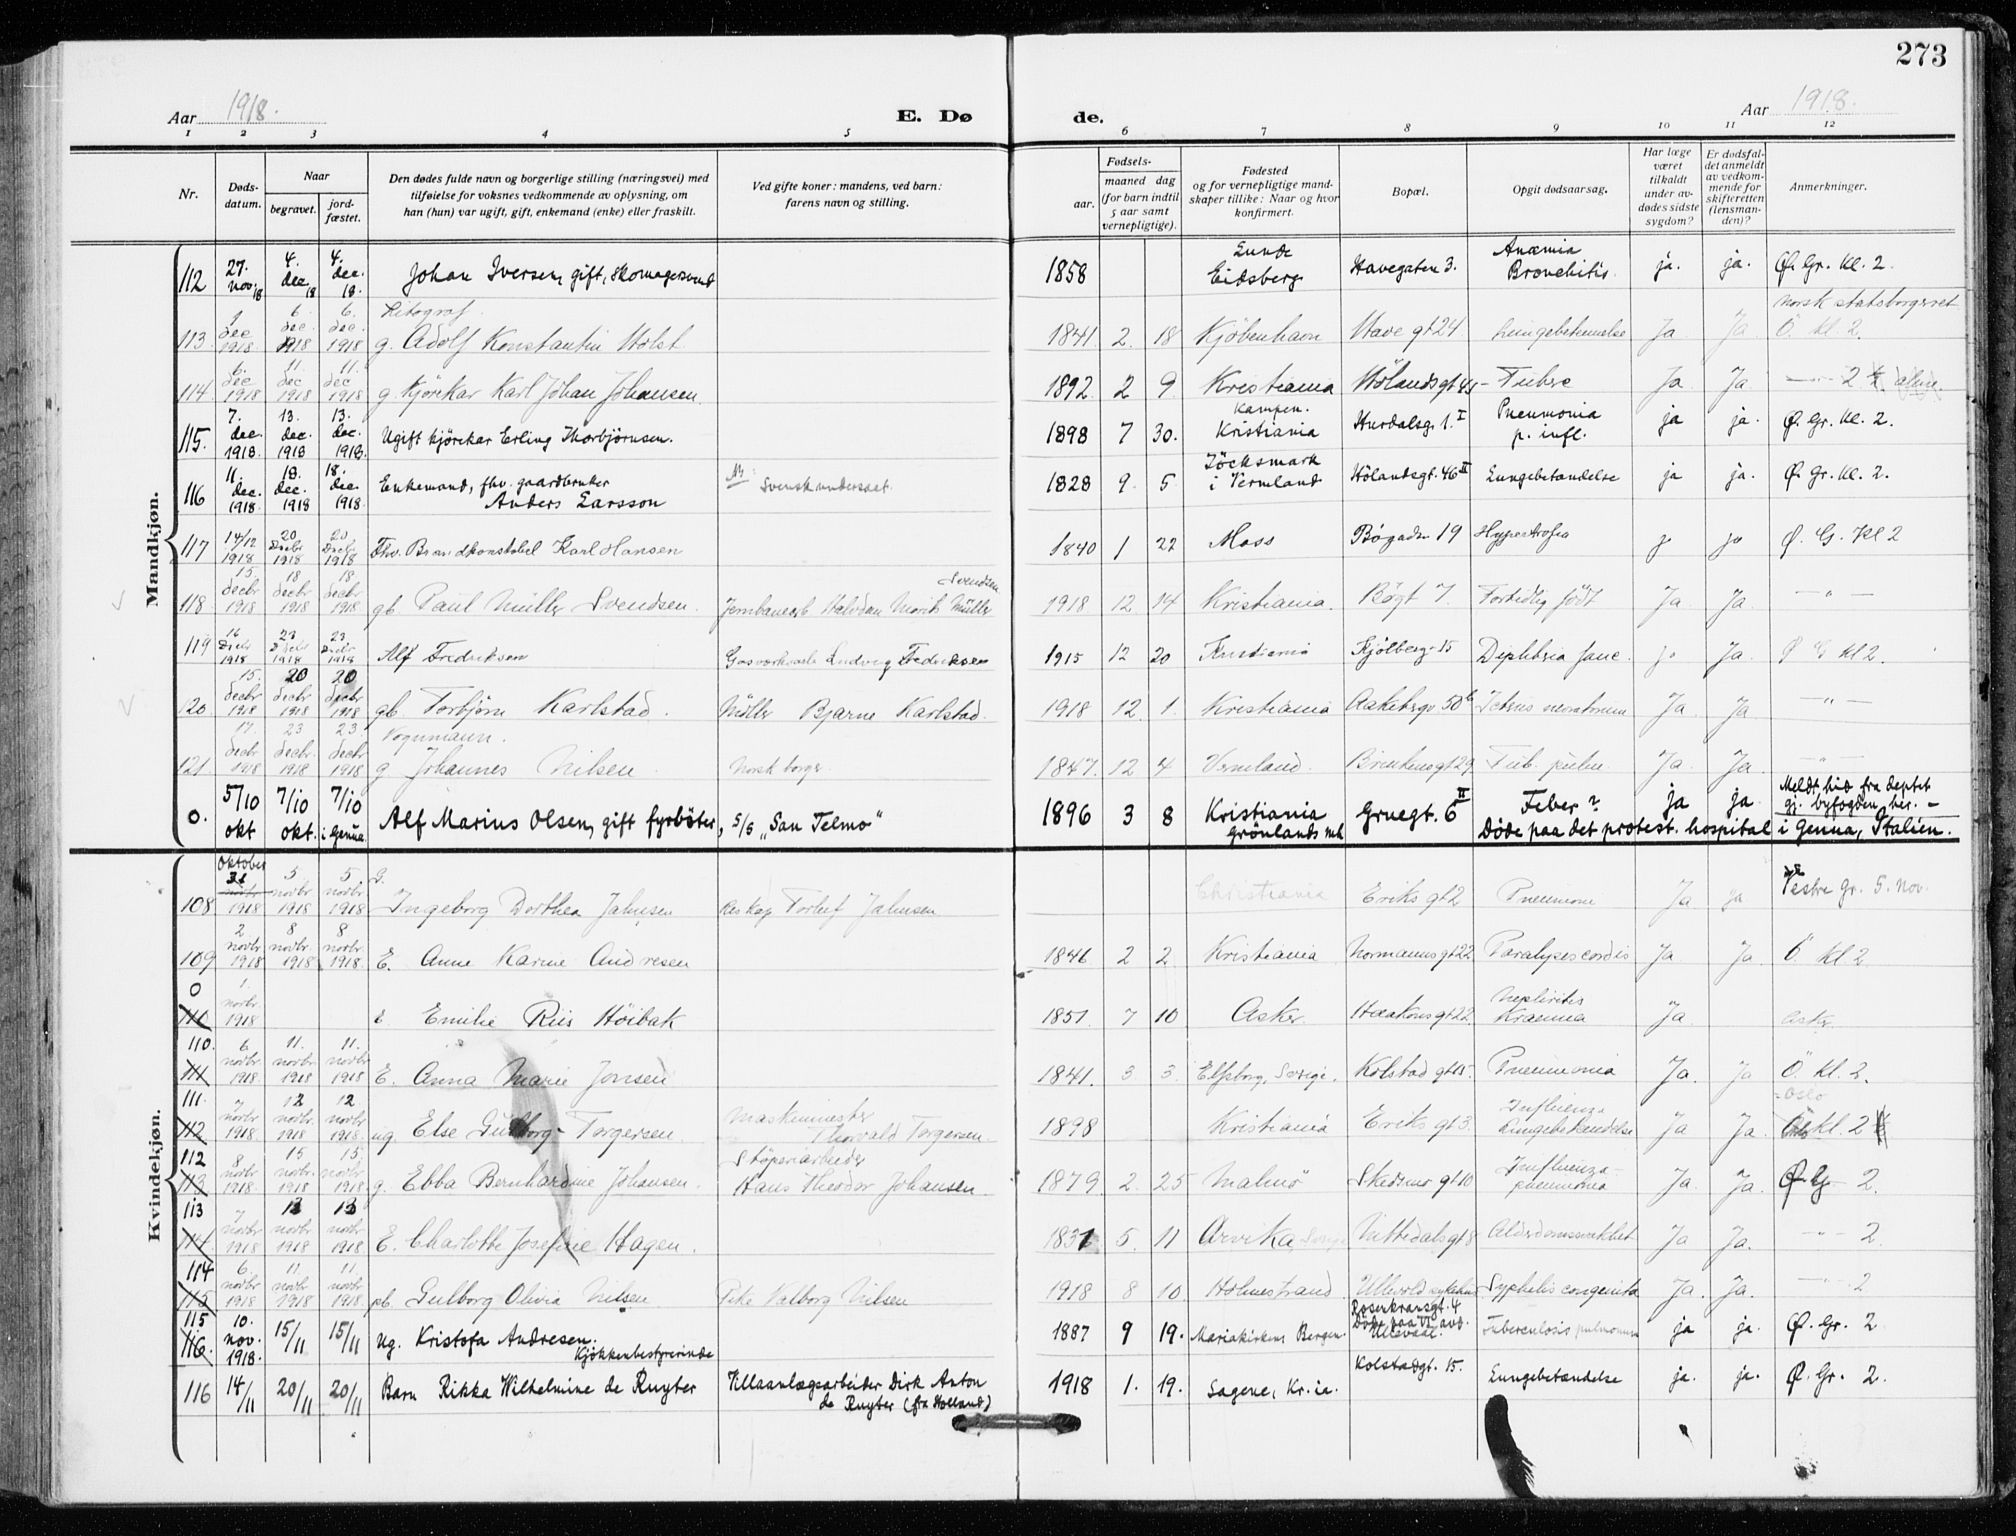 273
Aar 1918.
E. Dø de.
Aar 1918.
1 2 3 4 5 6 7 8 9 10 11 12
Nr.
Døds-
datum.
Naar
begravet.
jord-
fæstet.
Den dødes fulde navn og borgerlige stilling (næringsvei) med
tilføielse for voksnes vedkommende av oplysning, om
han (hun) var ugift, gift, enkemand (enke) eller fraskilt.
Ved gifte koner: mandens, ved barn:
farens navn og stilling.
Fødsels-
aar.
maaned dag
(for barn indtil
5 aar samt
vernepligtige).
Fødested
og for vernepligtige mand-
skaper tillike: Naar og hvor
konfirmert.
Bopæl.
Opgit dødsaarsag.
Har læge
været
tilkaldt
under av-
dødes sidste
sygdom?
Er dødsfal-
det anmeldt
av vedkom-
mende for
skifteretten
(lensman-
den)?
Anmerkninger.
Mandkjøn.
112 27. nov. 18 4. dec. 18 4. dec. 18. Johan Iversen, gift, skomagersvend 1858 Lunde Eidsberg Havegaten 3. Anæmia Bronchitis. ja. ja. Ø. Gr. Kl. 2.
113. 1 dec 1918 6. dec. 1918 6. dec. 1918 Litograf. g. Adolf Konstantin Holst 1841. 2. 18 Kjöbenhavn Havegt 24 Lungebetennelse Ja Ja norsk statsborgerret Ö. kl. 2.
114. 6. dec 1918 11. dec 1918 11. dec 1918 g. Kjörekar Karl Johan Johansen. 1892. 2 9. Kristiania Hölandsgt 45 Tuberc Ja. Ja. — " — 2
115. 7. dec. 1918. 13. dec. 1918 13. dec. 1918. Ugift kjörekar Erling Thorbjørnsen. 1898 7 30. Kampen. Kristiania Hurdalsg. 1. I Pneumonia p. infl. ja ja. Ø. Gr. Kl. 2.
116 11. dec. 1918. 18. dec. 1918 18. dec. 1918 Enkemand, fhv. gaardbruker Anders Larsson NB: Svensk undersaat. 1828 9. 5. Jöcksmark i Vermland Hölandsgt. 46 II Lungebetændelse ja ja. Ø. Gr. Kl. 2.
117 14/12 1918 20 Decbr 1918 20 Decbr 1918 Fhv. Brandkonstabel Karl Hansen 1840 1 22 Moss Bøgaden 19 Hypertrofia jo jo Ø. G. Kl 2
118. 15. decbr 1918 18 decbr 1918 18 decbr 1918 gb. Paul Müller Svendsen. Jernbanearb. Halvdan Marik Müller Svendsen 1918 12. 14 Kristiania. Bögt 7. Fortidlig födt Ja. Ja. — " —
119 16 Decbr 1918 23 Decbr 1918 23. Decbr 1918 Alf Fredriksen Gasverksarb Ludvig Fredriksen 1915 12 20 Kristiania Kjölberg. 15 Diphteria fauc. jo Ja. Ø G Kl 2.
120. 15. decbr 1918 20 decbr 1918 20 decbr 1918 gb. Torbjörn Karlstad. Möller Bjarne Karlstad. 1918 12. 1. Kristiania Aakebergv 50b Icterus neonatorum Ja. Ja. — " —
121 17. decbr 1918 23 decbr 1918 23 decbr 1918 Vognmann. g. Johannes Nilsen. Norsk borger 1847. 12 4 Vermland. Brinkensgt 29 Tub. pulm. Ja. Ja. — " —
0. 5/10 okt 7/10 okt. 7/10 i Genua Alf Marius Olsen, gift fyrböter, s/s "San Telmo" 1896 3 8 Kristiania Grønlands mh Gruegt. 6 II Feber? ja ja Meldt hid fra deptet gj. byfogden her. —
Døde paa det protest. hospital i Genua, Italien.
Kvindekjøn.
108 Oktober 31 novbr 1918 5. novbr 1918 5. novbr 1918 G. Ingeborg Dorthea Jahnsen Torleif Jahnsen Christiania Eriksgt 2 Pneumoni Ja ja Vestre Gr. 5. nov.
109 2 novbr 1918 8 novbr. 1918 8 novbr. 1918. E. Anne Karine Andresen 1846 2 2 Kristiania Normannsgt 22 Paralyses cordis Ja. Ja. Ö. Kl 2
0 110 1. novbr 1918 E Emilie Riis Höibak 1851 7 10 Asker. Haakonsgt 22. Nephritis Ja. Asker
110. 111 6. novbr 1918 11. novbr 1918 11. novbr 1918 E. Anna Marie Jonsen 1841. 3 3. Elfsborg, Sverige. Kolstadgt 15. Pneumonia Ja. Ja Ö. kl. 2.
111. 112 7 novbr 1918 12 novbr. 1918 12 novbr. 1918 ug. Else Gulborg Torgersen. Maskinmester Thorvald Torgersen. 1898 Kristiania Eriksgt 3. Influenza Lungebetændelse Ja Ja. Oslo kl. 2
112 113 8 novbr. 1918. 15 novbr. 1918 15. novbr. 1918 g. Ebba Bernhardine Johansen. Støperiarbeider Hans Theodor Johansen. 1879. 2. 25 Malmö Skedsmogt 10 Influenza- pneumonia Ja. Ja. Ø. G. 2.
113 114 7 novbr 1918 13 novbr 1918 13 novbr. 1918 E. Charlotte Josefine Hagen. 1831 5. 11 Arvika, Sverige Nittedalsgt 8 Alderdomssvakhet Ja Ja. — " — 2.
114 115 6. novbr. 1918 11 novbr 1918 11 novbr. 1918 pb. Gulborg Olivia Nilsen Pike Valborg Nilsen 1918 8 10 Holmestrand Ullevold sykehus Syphilis congenita Ja. Ja. — " — 2
115 116. 10. nov. 1918. 15/11 15/11 Ug. Kristofa Andresen. Kjøkkenbestyrerinde 1887 9 19. Mariakirken, Bergen Rosenkransgt. 4 Døde paa VI avd. Ullevaal. Tuberculosis pulmonum ja ja. Ø. Gr. 2.
116 14/11 20/11 20/11 Barn Rikka Wilhelmine de Ruyter Villaanlægsarbeider Dirk Anton de Ruyter (fra Holland) 1918 1. 19. Sagene, Kr.ia. Kolstadgt. 15. Lungebetændelse ja. ja. Ø. Gr. 2.